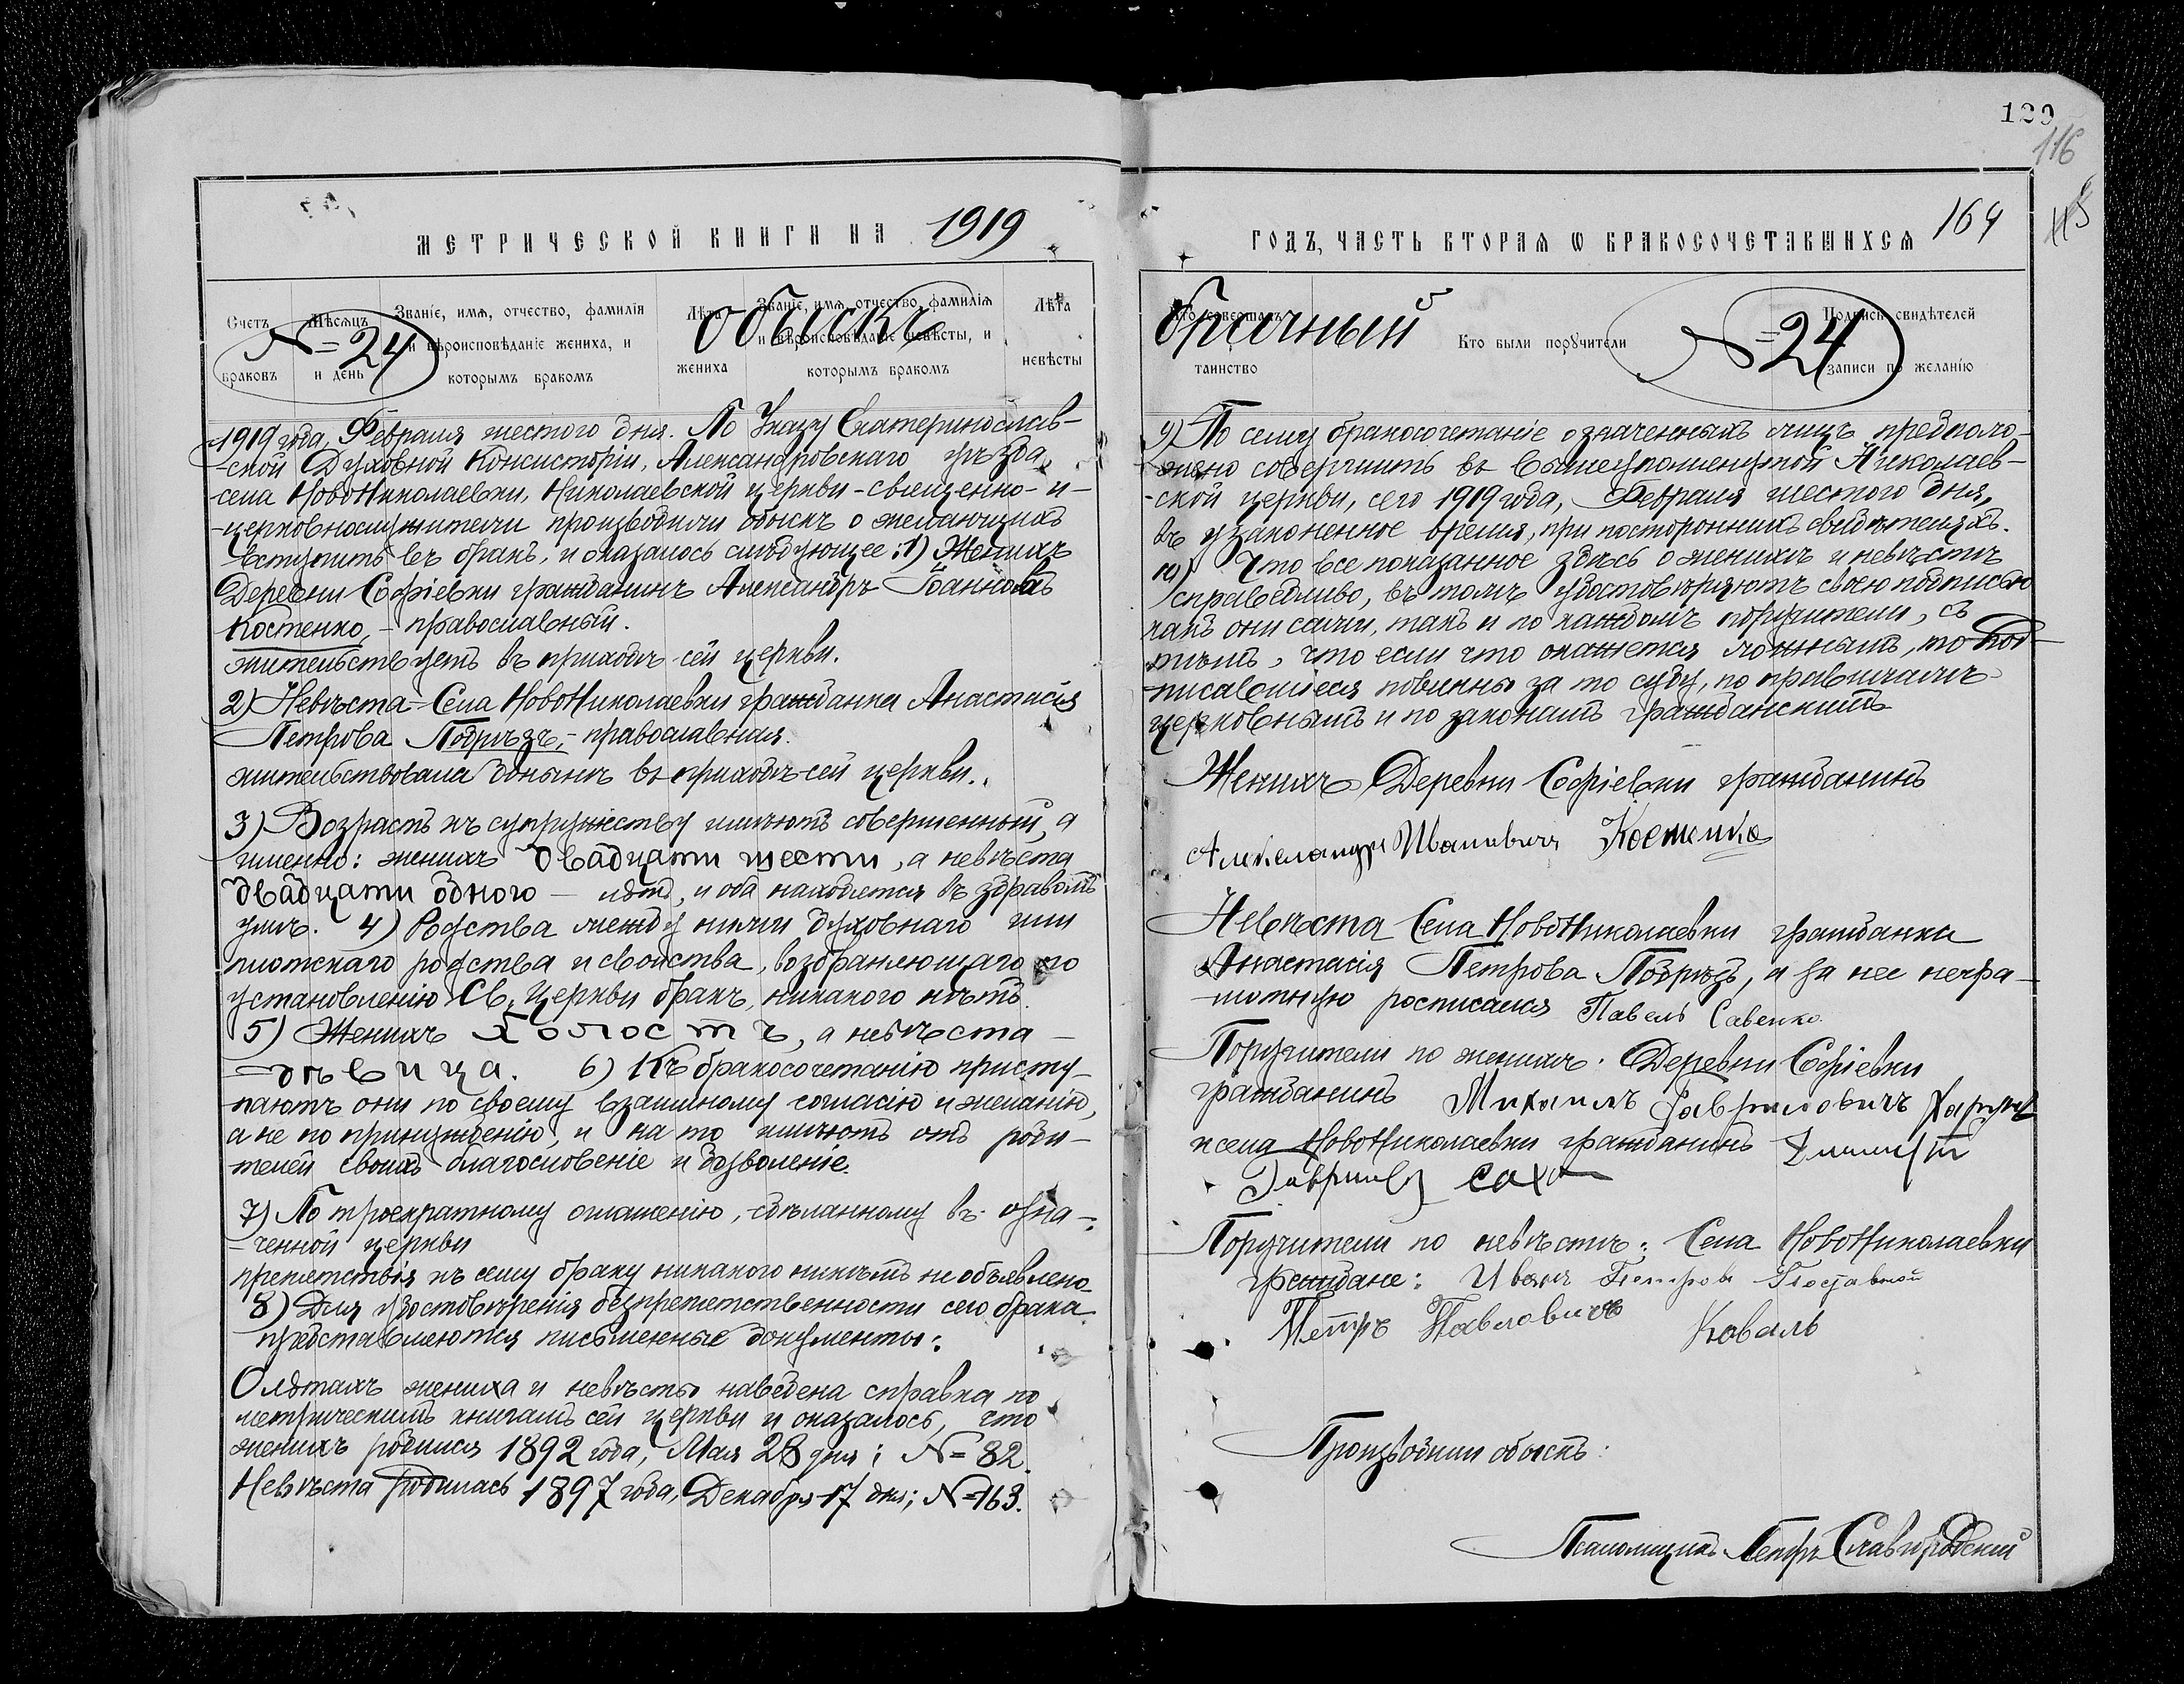 129
116
115
МЕТРИЧЕСКОЙ КНИГИ НА 1919
Счетъ браковъ
Мѣсяцъ и день
Званіе, имя, отчество, фамилія и вѣроисповѣданіе жениха, и которымъ бракомъ
Лѣта жениха
Званіе, имя, отчество, фамилія и вѣроисповѣданіе невѣсты, и которымъ бракомъ
Лѣта невѣсты
№ 24 Обыскъ
1919 года, Февраля шестого дня. По Указу Екатеринослав-
-ской Духовной Консисторіи, Александровскаго уѣзда,
села НовоНиколаевки, Николаевской церкви - священно- и -
-церковнослужители производили обыскъ о желающихъ
вступить въ бракъ, и оказалось слѣдующее: 1) Женихъ
Деревни Софіевки гражданинъ Александръ Іоанновъ
Костенко, - православный.
жительствуетъ въ приходѣ сей церкви.
2) Невѣста - Села НовоНиколаевки гражданка Анастасія
Петрова Подрѣзъ, - православная.
жительствовала донынѣ въ приходѣ сей церкви.
3) Возрастъ къ супружеству имѣютъ совершенный, а
именно: женихъ двадцати шести, а невѣста
двадцати одного - лѣтъ, и оба находятся въ здравомъ
умѣ. 4) Родства между ними духовнаго или
плотскаго родства и свойства, возбраняющаго по
установленію Св. Церкви бракъ, никакого нѣтъ.
5) Женихъ холостъ, а невѣста -
- дѣвица. 6) Къ бракосочетанію присту-
паютъ они по своему взаимному согласію и желанію,
а не по принужденію, и на то имѣютъ отъ роди-
телей своихъ благословеніе и дозволеніе.
7) По троекратному оглашенію, сдѣланному въ озна-
-ченной церкви
препятствія къ сему браку никакого никѣмъ не объявлено.
8) Для удостовѣренія безпрепятственности сего брака
представляются письменные документы:
О лѣтахъ жениха и невѣсты наведена справка по
метрическимъ книгамъ сей церкви и оказалось, что
женихъ родился 1892 года, Мая 28 дня; № 82.
Невѣста родилась 1897 года, Декабря 17 дня; № 163.
ГОДЪ, ЧАСТЬ ВТОРАЯ Ѡ БРАКОСОЧЕТАВШИХСЯ 164
Кто совершалъ таинство
Кто были поручители
Подписи свидѣтелей записи по желанію
брачный № 24
9) По сему бракосочетаніе означенныхъ лицъ предполо-
жено совершить въ вышеупомянутой Николаев-
-ской церкви, сего 1919 года, Февраля шестого дня,
въ узаконенное время, при постороннихъ свидѣтеляхъ.
10) Что все показанное здѣсь о женихѣ и невѣстѣ
справедливо, въ томъ удостовѣряютъ своею подписью
какъ они сами, такъ и по каждомъ поручители, съ
тѣмъ, что если что окажется ложнымъ, то под-
писавшіеся повинны за то суду, по правиламъ
церковнымъ и по законамъ гражданскимъ
Женихъ Деревни Софіевки гражданинъ
Александръ Ивановичъ Костенко
Невѣста Села НовоНиколаевки гражданка
Анастасія Петрова Подрѣзъ, а за нее негра-
мотную росписался Павелъ Савенко.
Поручители по женихѣ: Деревни Софіевки
гражданинъ Михаилъ Гавриловичъ
и села НовоНиколаевки гражданинъ
Поручители по невѣстѣ: Села НовоНиколаевки
граждане: Иванъ Петровъ
Петръ Павловичъ Коваль
Производили обыскъ:
Псаломщикъ Петръ Славгородскій